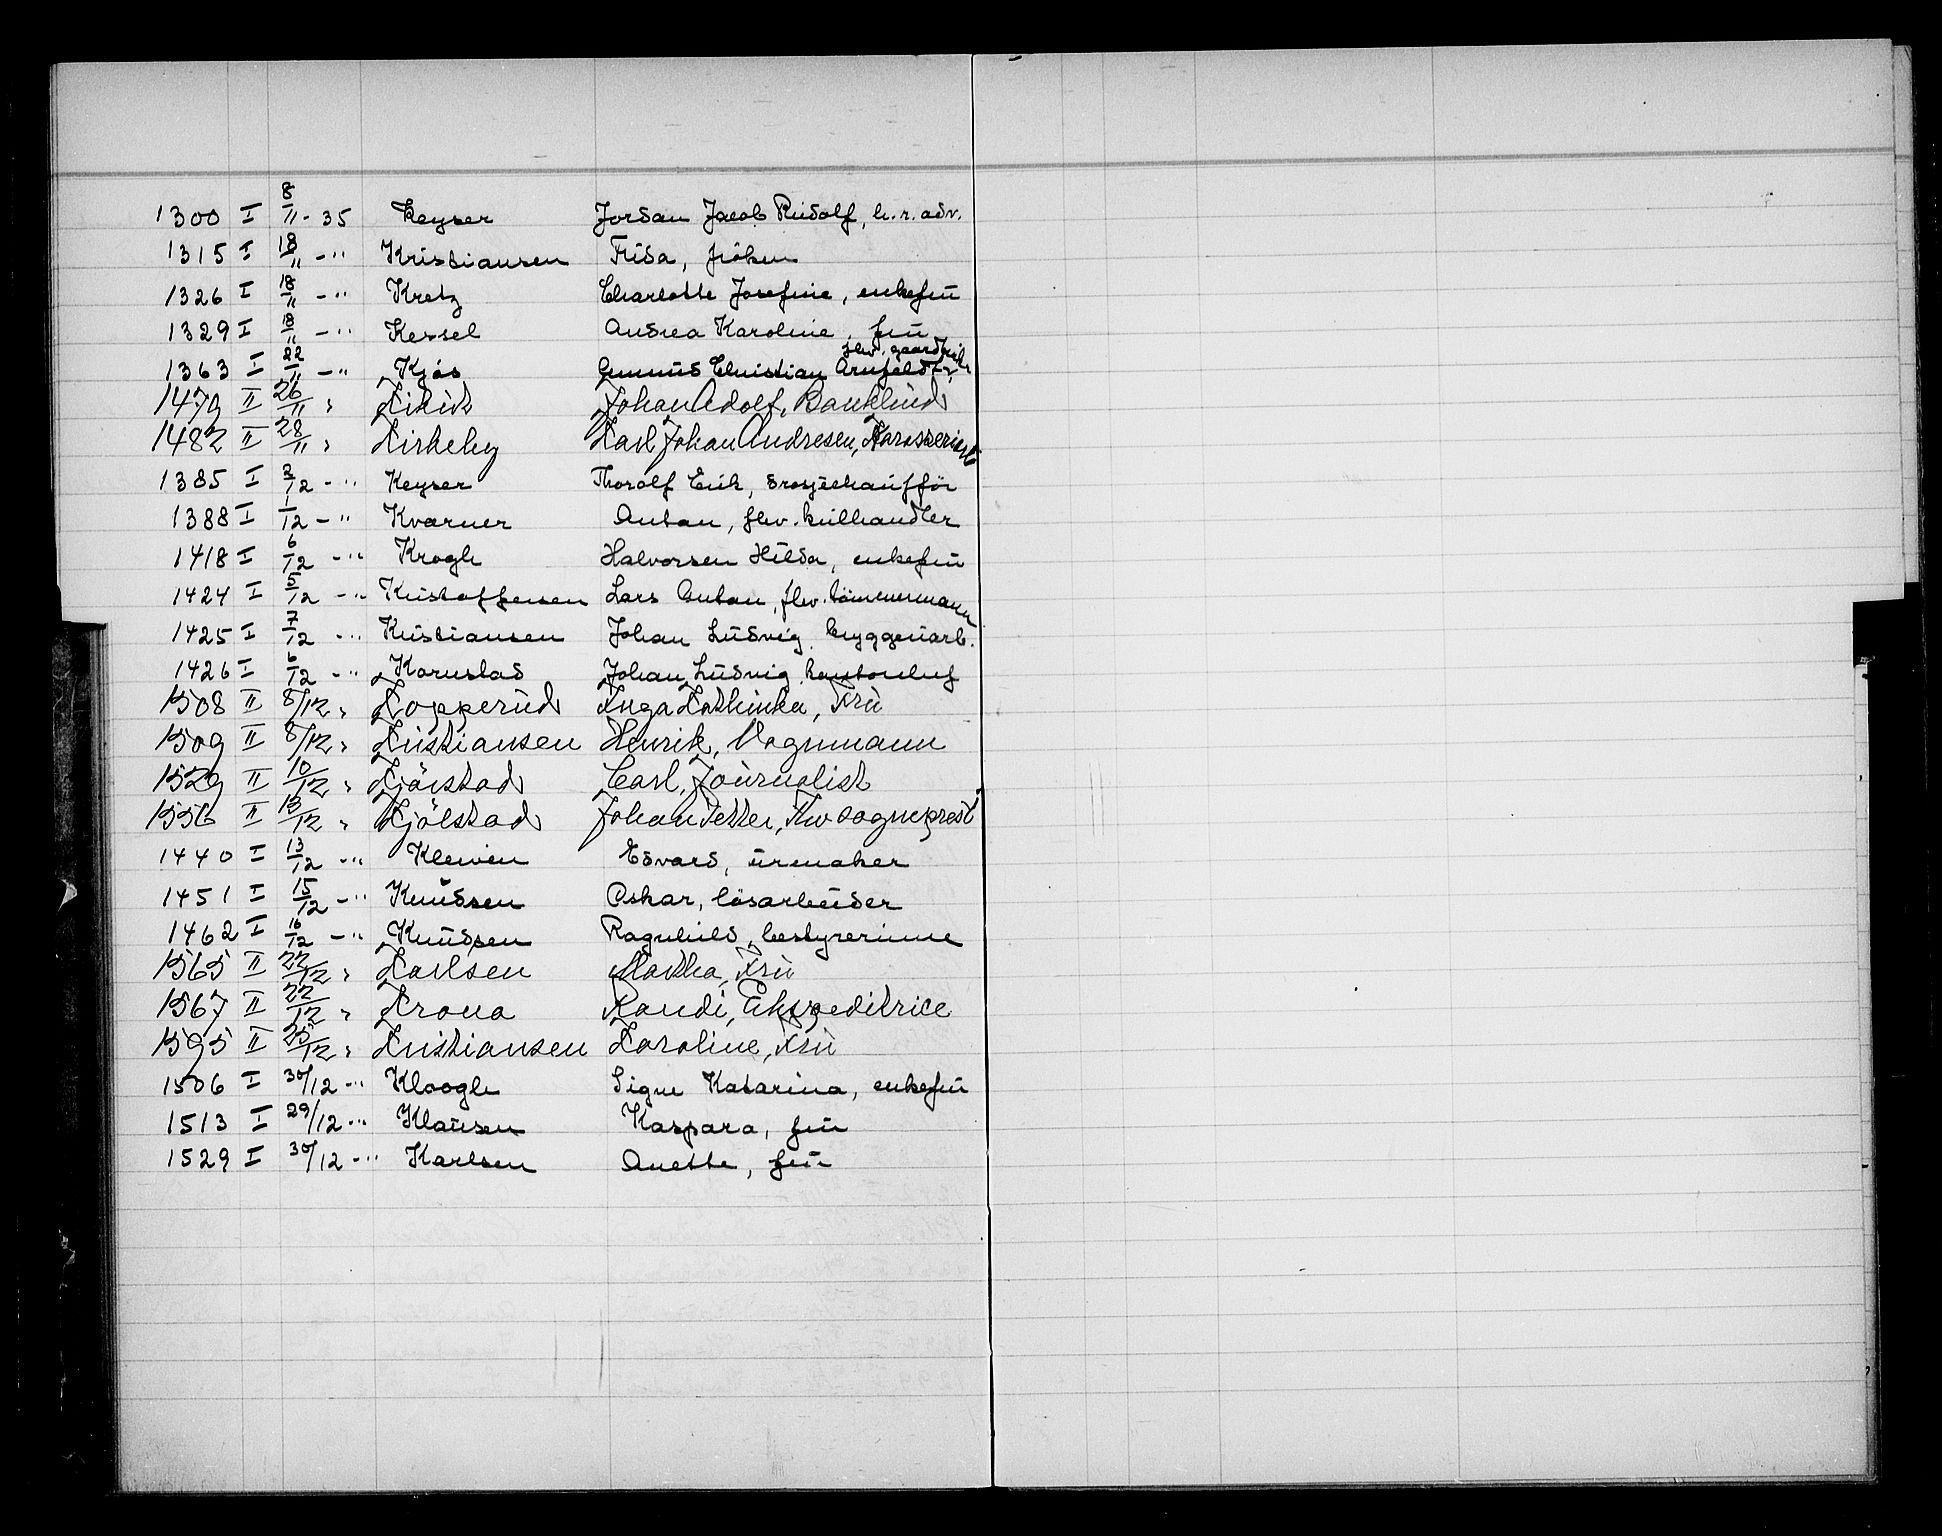 1300 I 8/11 - 35 Keyser Jordan Jacob Rudolf, h.r.adv.
1315 I 18/11 - " Kristiansen Frida, fröken
1326 I 18/11 - " Kretz Charlotte Josefine, enkefrü
1329 I 18/11 - " Kessel Andrea Karoline, frü
1363 I 22/11 - " Kjøs Gunnüs Christian Arnfeldt, fhv. gaardbr.
1479 II 26/11 " Johan Adolf, Banklred
1482 II 28/11 " Kirkeby Karl Johan Andresen, Karosseriarb
1385 I 2/12 - " Keyser Thorolf Erik, drosjechaufför
1388 I 1/12 - " Kværner Anton, fhv. kulhandler
1418 I 6/12 - " Krogh Halvorsen Hilda, enkefrü
1424 I 5/12 - " Kristoffersen Lars Anton, fhv. tömmermann
1425 I 7/12 - " Kristiansen Johan Ludvig bryggeriarb.
1426 I 6/12 - " Karnstad Johan Ludvig kontorchef
1508 II 8/12 " Kopperud Inga Kathinka, Frü
1509 II 8/12 " Kristiansen Henrik, Vognmann
1529 II 10/12 " Kjärstad Carl, Journalist
1556 II 13/12 " Kjölstad Johan Petter, Fhv sogneprest
1440 I 13/12 - " Klewin Edvard, urmaker
1451 I 15/12 - " Knudsen Oskar, lösarbeider
1462 I 16/12 - " Knudsen Ragnhild, bestyrerinne
1565 II 22/12 " Karlsen Martha, Frü
1567 II 22/12 " Krona Randi, Ekspeditrice
1595 II 25/12 " Kristiansen Karoline, Frü
1506 I 30/12 - " Kloogh Signe Katarina, enkefrü
1513 I 29/12 - " Klausen Kaspara, frü
1529 I 30/12 - " Karlsen Anette, frü